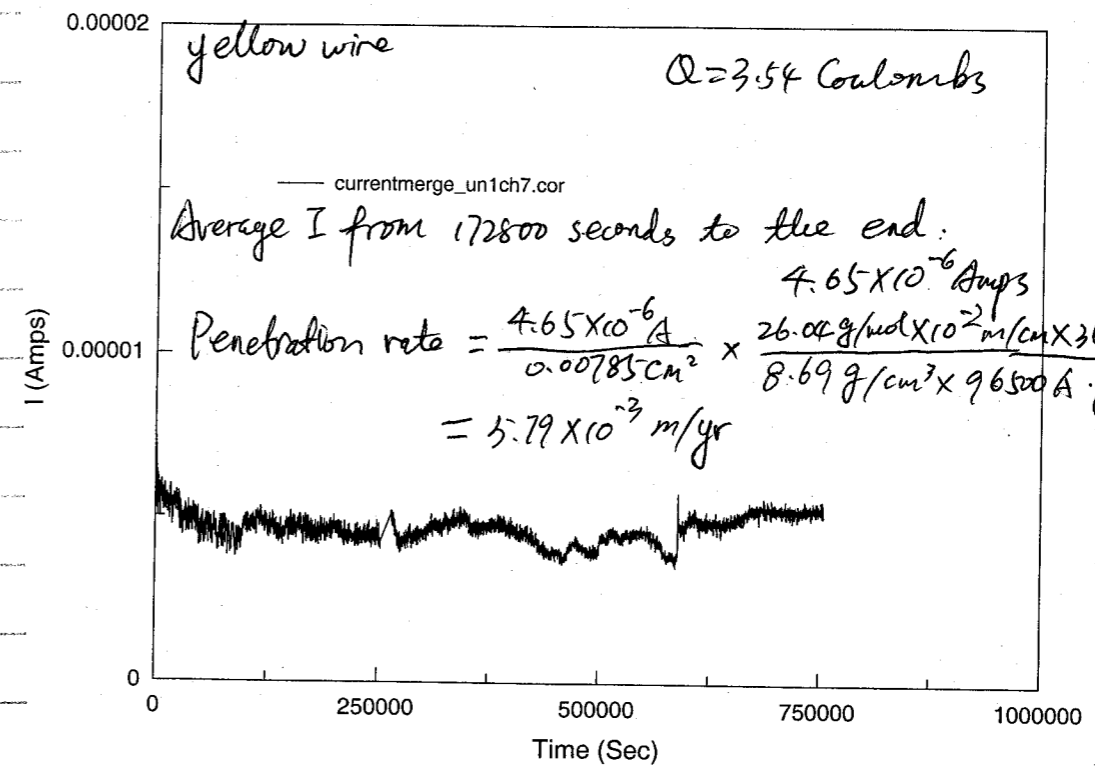 0.00002
yellow wire
Q=3.54 Coulombs
currentmerge_un1ch7.cor
Average I from 172800 seconds to the end:
4.65X10⁻⁶ Amps
Penetration rate = 4.65X10⁻⁶A / 0.00785cm² × 26.04g/molX10⁻²m/cmX3 / 8.69g/cm³X96500A.
= 5.79X10⁻³ m/yr
I (Amps)
0.00001
0
0 250000 500000 750000 1000000
Time (Sec)